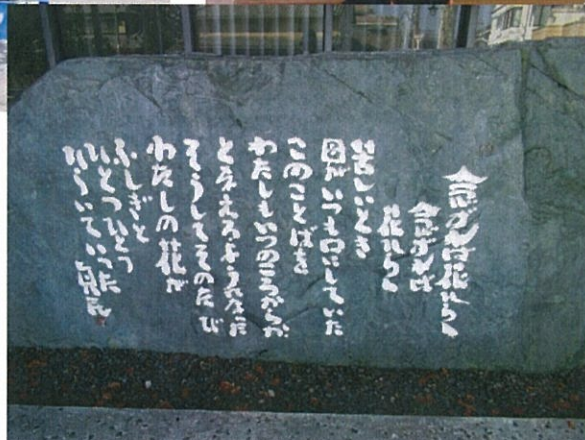 念ずれば花ひらく
念ずれば
花ひらく
苦しいとき
母がいつも口にしていた
このことばを
わたしもいつのころからか
となえるようになった
そうしてそのたび
わたしの花が
ふしぎと
ひとつひとつ
ひらいていった 真民